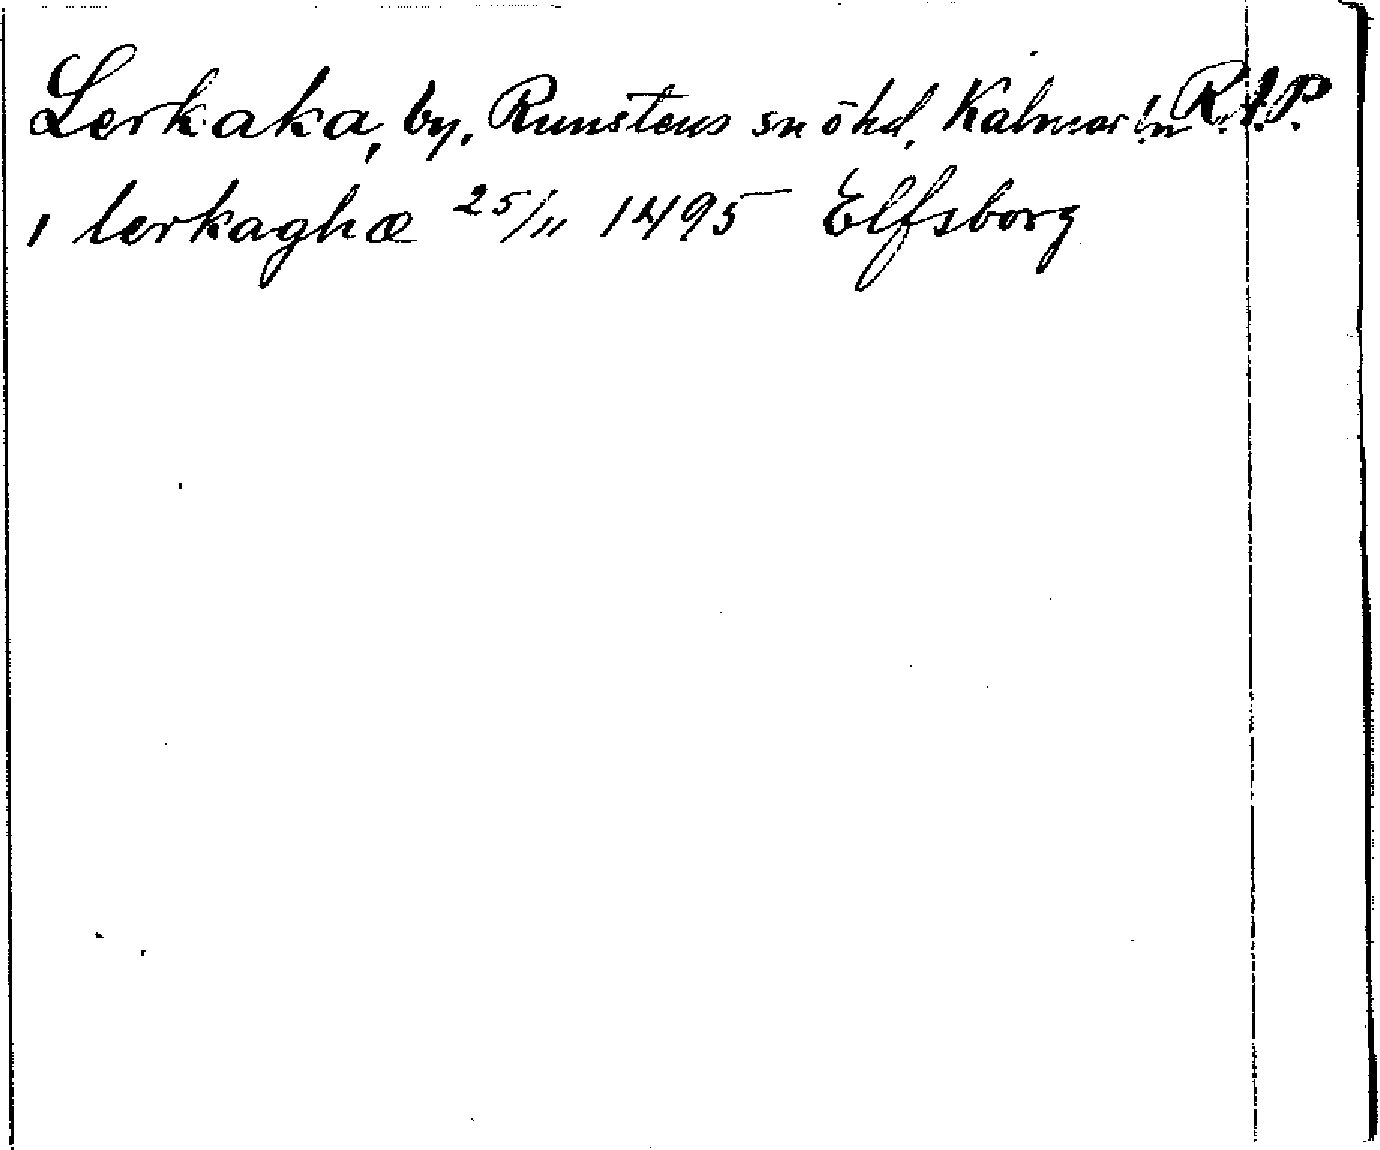 Lerkaka, by, Runstens sn ö hd, Kalmar ln R.A.P.
i lerkaghæ 25/11 1495 Elfsborg